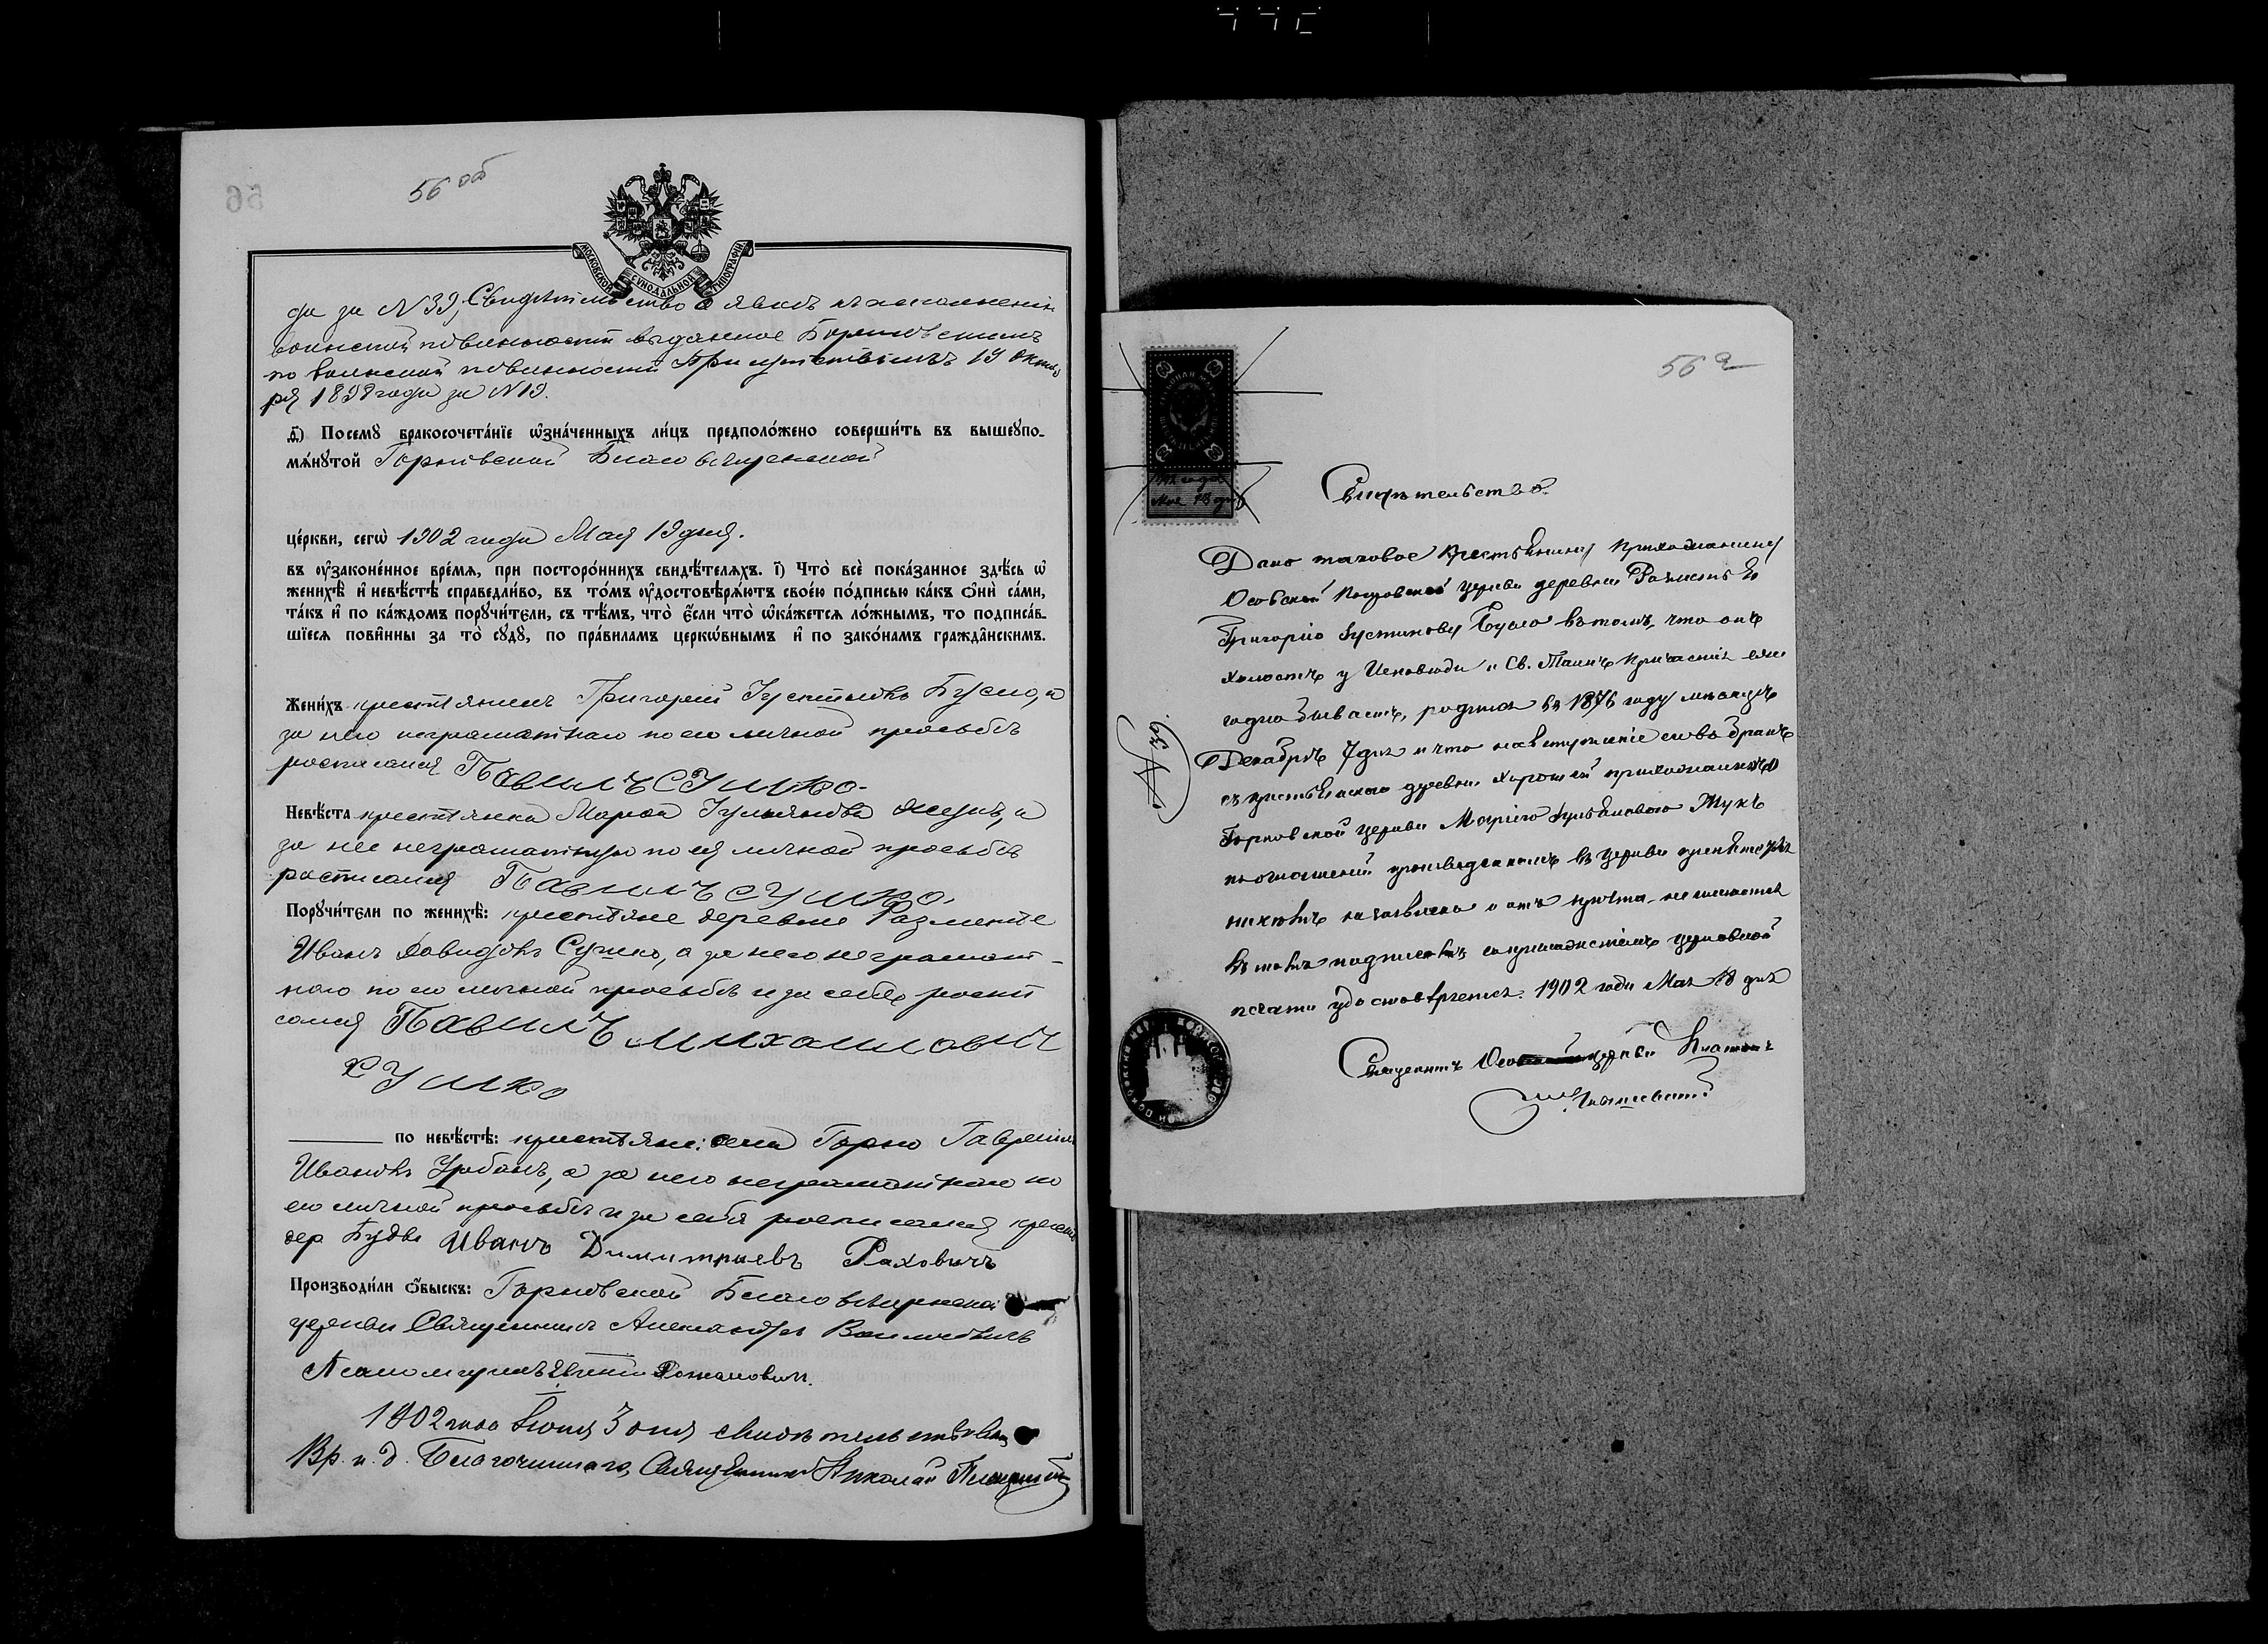 56 об
МОСКОВСКОЙ СѴНОДАЛЬНОЙ ТИПОГРАФІИ
да за N 39, Свидѣтельство о явкѣ къ исполненію
воинской повинности выданное
по воинской повинности Присутствіемъ 19 Октяб
ря 1898 года за N 19.
д҃) Посемꙋ бракосочета́нїе ѡ҆зна́ченныхъ ли́цъ предполо́жено соверши́ть въ вышеꙋпо-
мѧ́нꙋтой Горновской Благовѣщенской
це́ркви, сегѡ̀ 1902 года Мая 19 дня.
въ ᲂу҆зако́ненное вре́мѧ, при посторо́ннихъ свидѣ́телѧхъ. і҃) Что̀ всѐ пока́занное здѣ́сь ѡ҆
женихѣ̀ и҆ невѣ́стѣ справедли́во, въ то́мъ ᲂу҆достовѣрѧ́ютъ свое́ю по́дписью ка́къ ѻ҆нѝ са́ми,
та́къ и҆ по ка́ждомъ порꙋчи́тели, съ тѣ́мъ, что̀ є҆́сли что̀ ѡ҆ка́жетсѧ ло́жнымъ, то подписа́в-
шїесѧ пови́нны за то̀ сꙋдꙋ̀, по пра́виламъ церко́внымъ и҆ по зако́намъ гражда́нскимъ.
Жени́хъ крестьянинъ Григорій Іустиновъ Бусло, а
за него неграматнаго по его личной просьбѣ
росписался Павилъ Сушко.
Невѣ́ста крестьянка Марія Іульянова Жукъ, а
за нее неграматную по ея личной просьбѣ
росписался Павилъ Сушко.
Порꙋчи́тели по женихѣ̀: крестьяне деревни
Иванъ Давидовъ Сушко, а за него неграмот-
наго по его личной просьбѣ и за себя роспи
сался Павилъ Михаилович
Сушко
по невѣ́стѣ: крестьяне: села Горно Гавріилъ
Ивановъ Урбанъ, а за него неграматнаго по
его личной просьбѣ и за себя росписался крест.
дер Будви Иванъ Димитриевъ Рахович
Производи́ли ѻ҆́быскъ: Горновской Благовѣщенской
церкви Священникъ Александръ
Псаломщикъ Евгеній
1902 года Іюня 3 дня свидѣтельствовалъ
Вр. и. д. Благочиннаго, Священникъ Николай
56 а
1902 года
Мая 18 дня
Свидѣтельство.
Дано таковое крестьянину прихожанину
Покровской церкви деревни
Григорію Іустинову Бусло въ томъ, что онъ
холостъ у Исповѣди и Св. Таинъ Причастія еже
годно бываетъ, родился въ 1876 году мѣсяцѣ
Декабрѣ 7 дня и что на вступленіе его въ бракъ
съ крестьянскою деревни прихожанкою
Горновской церкви Маріею Іульяновою Жукъ
по оглашеніи произведенномъ въ церкви препятствія
никакихъ не заявлено и отъ причта не имѣется
въ томъ подписомъ съ приложеніемъ церковной
печати удостовѣряется. 1902 года Мая 18 дня
Священникъ церкви Платонъ